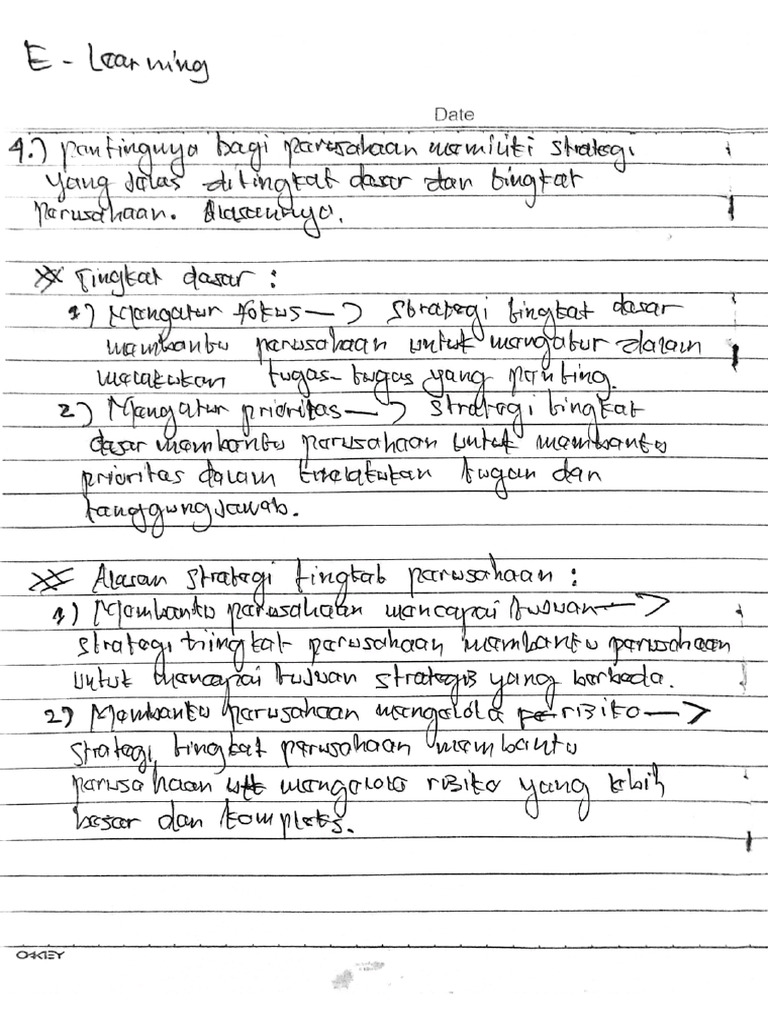 E - Learning
Date
4.) pentingnya bagi perusahaan memiliki strategi
yang jelas ditingkat dasar dan tingkat
perusahaan. Alasannya.
Tingkat dasar :
1) Mengatur fokus → strategi tingkat dasar
membantu perusahaan untuk mengatur dalam
melakukan tugas-tugas yang penting.
2) Mengatur prioritas → strategi tingkat
dasar membantu perusahaan untuk membantu
prioritas dalam melakukan tugan dan
tanggung jawab.
Alasan strategi tingkat perusahaan :
1) Membantu perusahaan mencapai tujuan →
strategi tingkat perusahaan membantu perusahaan
untuk mencapai tujuan strategis yang berbeda.
2) Membantu perusahaan mengelola risiko →
strategi tingkat perusahaan membantu
perusahaan mengelola risiko yang lebih
besar dan kompleks.
OAKEY